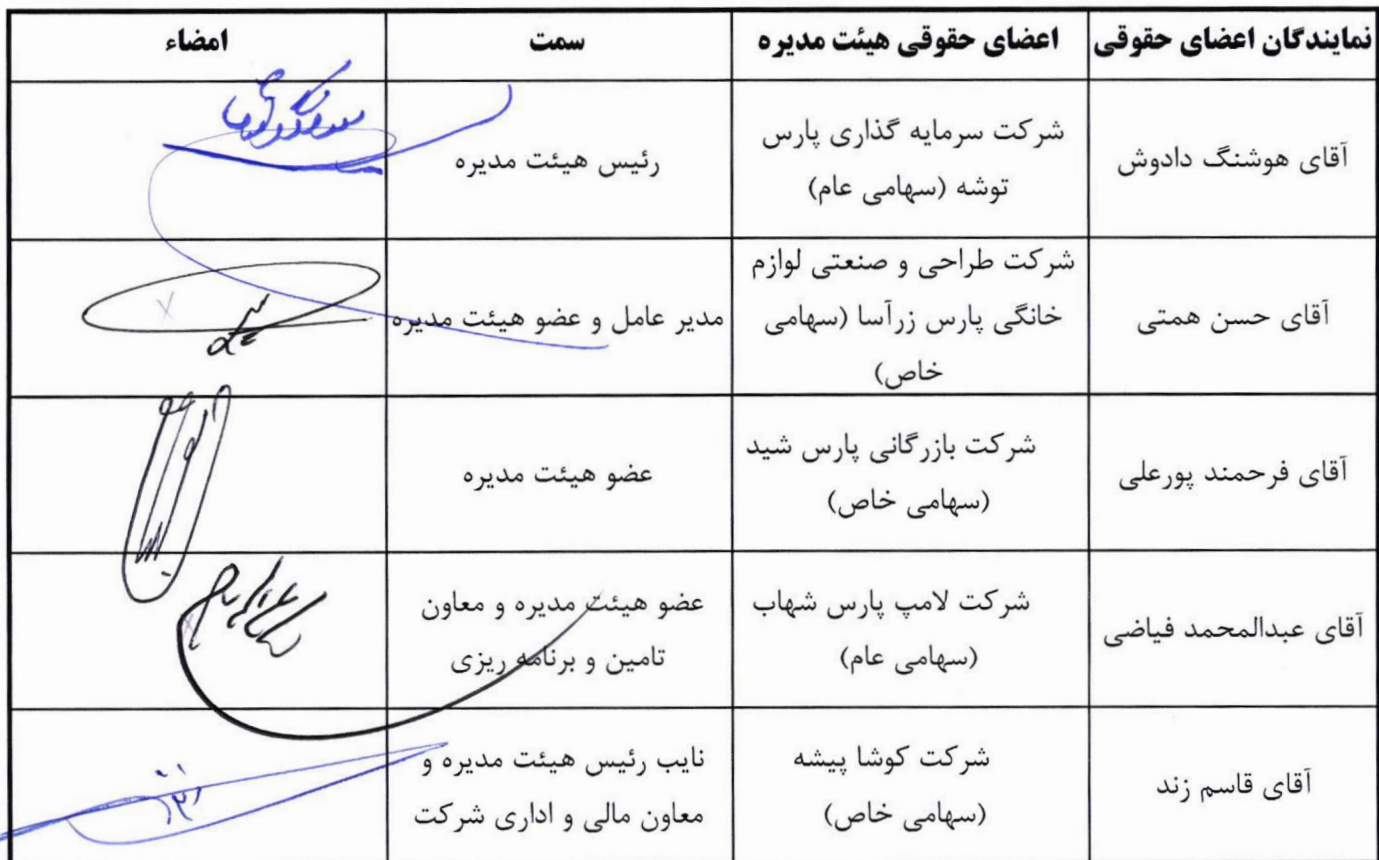 نمایندگان اعضای حقوقی اعضای حقوقی هیئت مدیره سمت امضاء
آقای هوشنگ دادوش
شرکت سرمایه گذاری پارس
توشه (سهامی عام)
رئیس هیئت مدیره
آقای حسن همتی
شرکت طراحی و صنعتی لوازم
خانگی پارس زرآسا (سهامی
خاص)
مدیر عامل و عضو هیئت مدیره
آقای فرحمند پورعلی
شرکت بازرگانی پارس شید
(سهامی خاص)
عضو هیئت مدیره
آقای عبدالمحمد فیاضی
شرکت لامپ پارس شهاب
(سهامی عام)
عضو هیئت مدیره و معاون
تامین و برنامه ریزی
آقای قاسم زند
شرکت کوشا پیشه
(سهامی خاص)
نایب رئیس هیئت مدیره و
معاون مالی و اداری شرکت